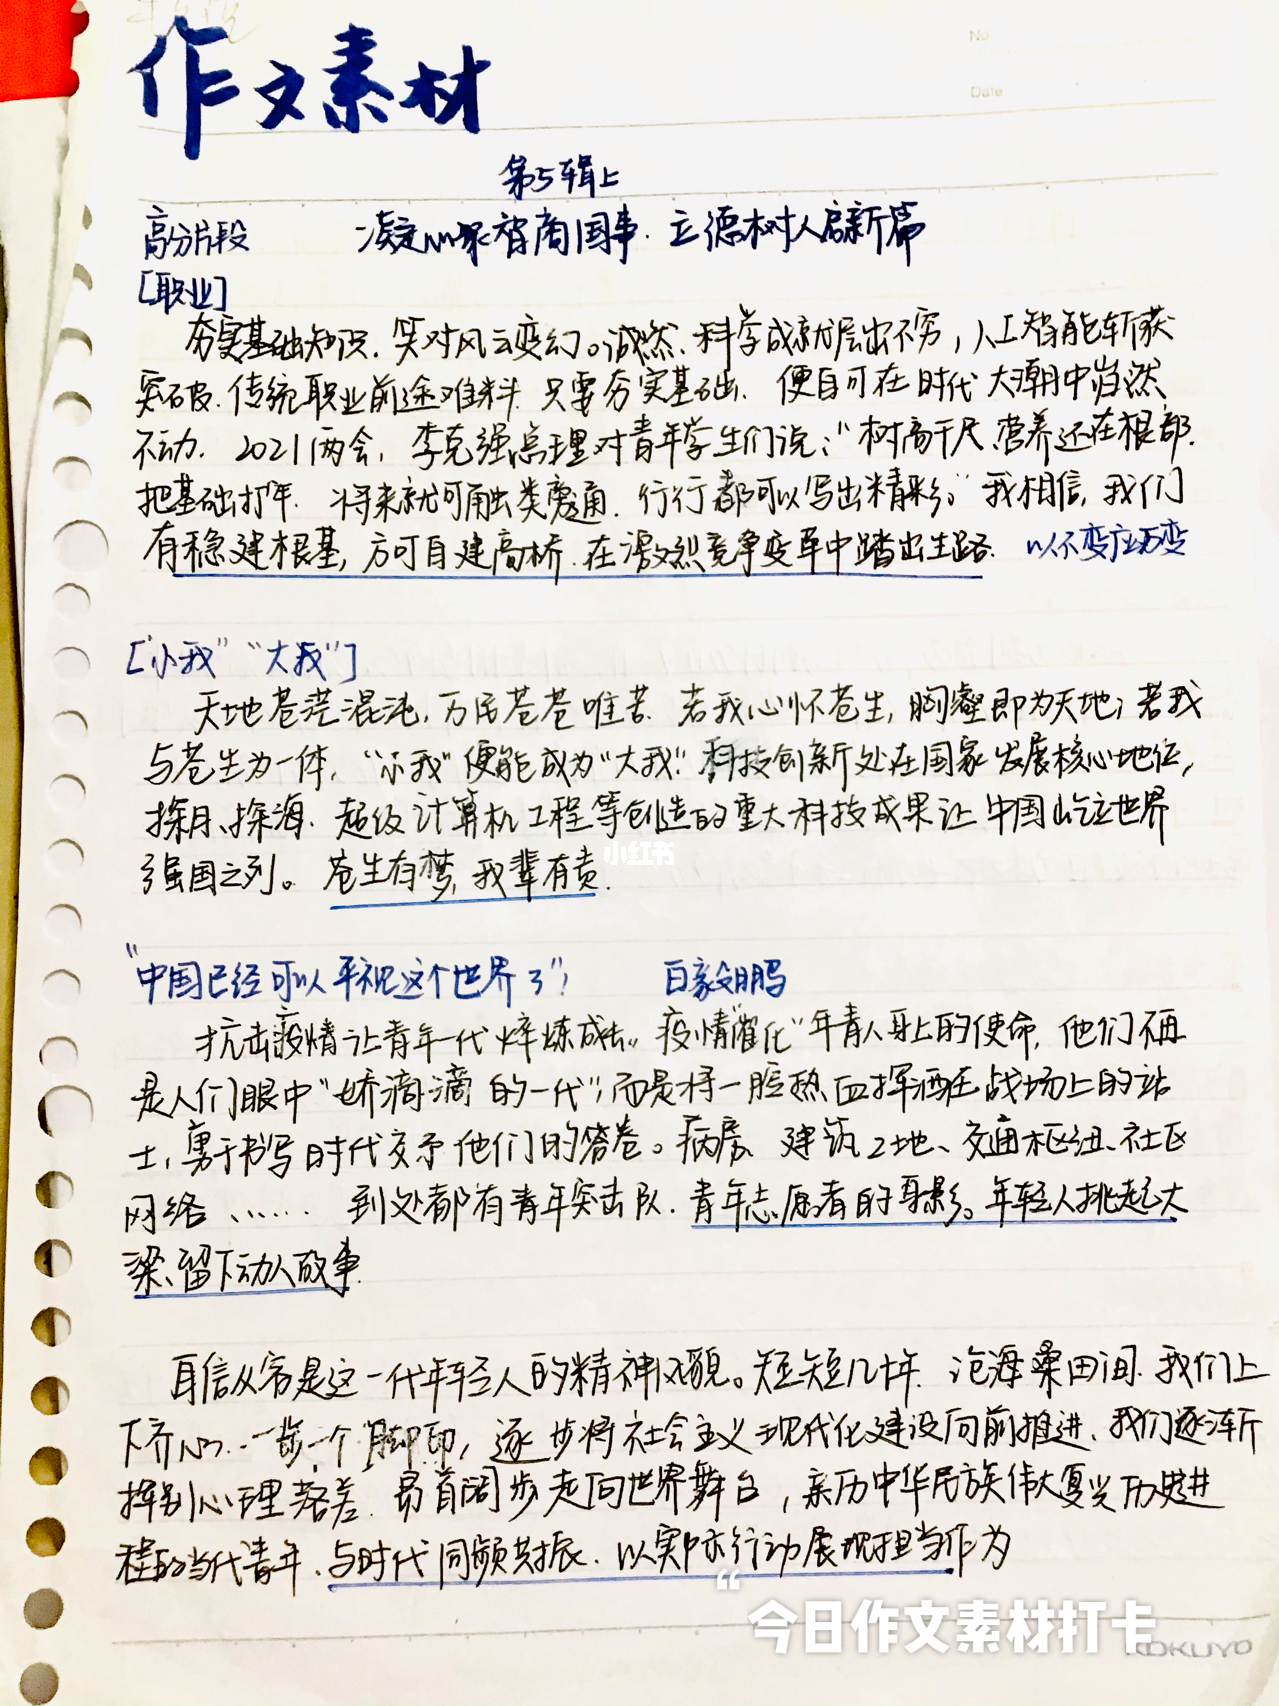 No.
Date
作文素材
第5辑上
高分片段 凝心聚智商国事.立德树人启新篇
[职业]
夯实基础知识.笑对风云变幻。诚然、科学成就层出不穷,人工智能斩获
突破.传统职业前途难料.只要夯实基础.便自可在时代大潮中岿然
不动. 2021两会,李克强总理对青年学生们说:“树高千尺、营养还在根部.
把基础打牢.将来就可触类旁通.行行都可以写出精彩。”我相信,我们
有稳建根基,方可自建高桥.在激烈竞争变革中踏出生路. 以不变应万变
[“小我”“大我”]
天地苍茫混沌,万民苍苍唯苦.若我心怀苍生,胸壑即为天地;若我
与苍生为一体,“小我”便能成为“大我”.科技创新处在国家发展核心地位,
探月、探海.超级计算机工程等创造的重大科技成果让中国屹立世界
强国之列。苍生有梦,我辈有责.
小红书
“中国已经可以平视这个世界了”; 白毅鹏
抗击疫情让青年一代淬炼成长。疫情“催化”年青人身上的使命,他们不再
是人们眼中“娇滴滴的一代”,而是将一腔热血挥洒在战场上的站
士,勇于书写时代交予他们的答卷。病房、建筑工地、交通枢纽、社区
网络、…… 到处都有青年突击队.青年志愿者的身影。年轻人挑起大
梁、留下动人故事.
自信从容是这一代年轻人的精神风貌。短短几十年.沧海桑田间.我们上
下齐心..一步一个脚印,逐步将社会主义现代化建设向前推进、我们逐渐
挥别心理落差.昂首阔步走向世界舞台,亲历中华民族伟大复兴历史进
程的当代青年、与时代同频共振.以实际行动展现担当作为
“今日作文素材打卡
KOKUYO